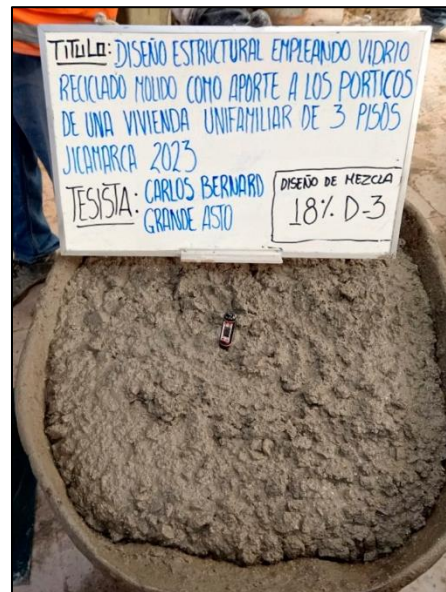 TITULO: DISEÑO ESTRUCTURAL EMPLEANDO VIDRIO
RECICLADO MOLIDO COMO APORTE A LOS PORTICOS
DE UNA VIVIENDA UNIFAMILIAR DE 3 PISOS
JICAMARCA 2023
TESISTA: CARLOS BERNARD
GRANDE ASTO
DISEÑO DE MEZCLA
18% D-3